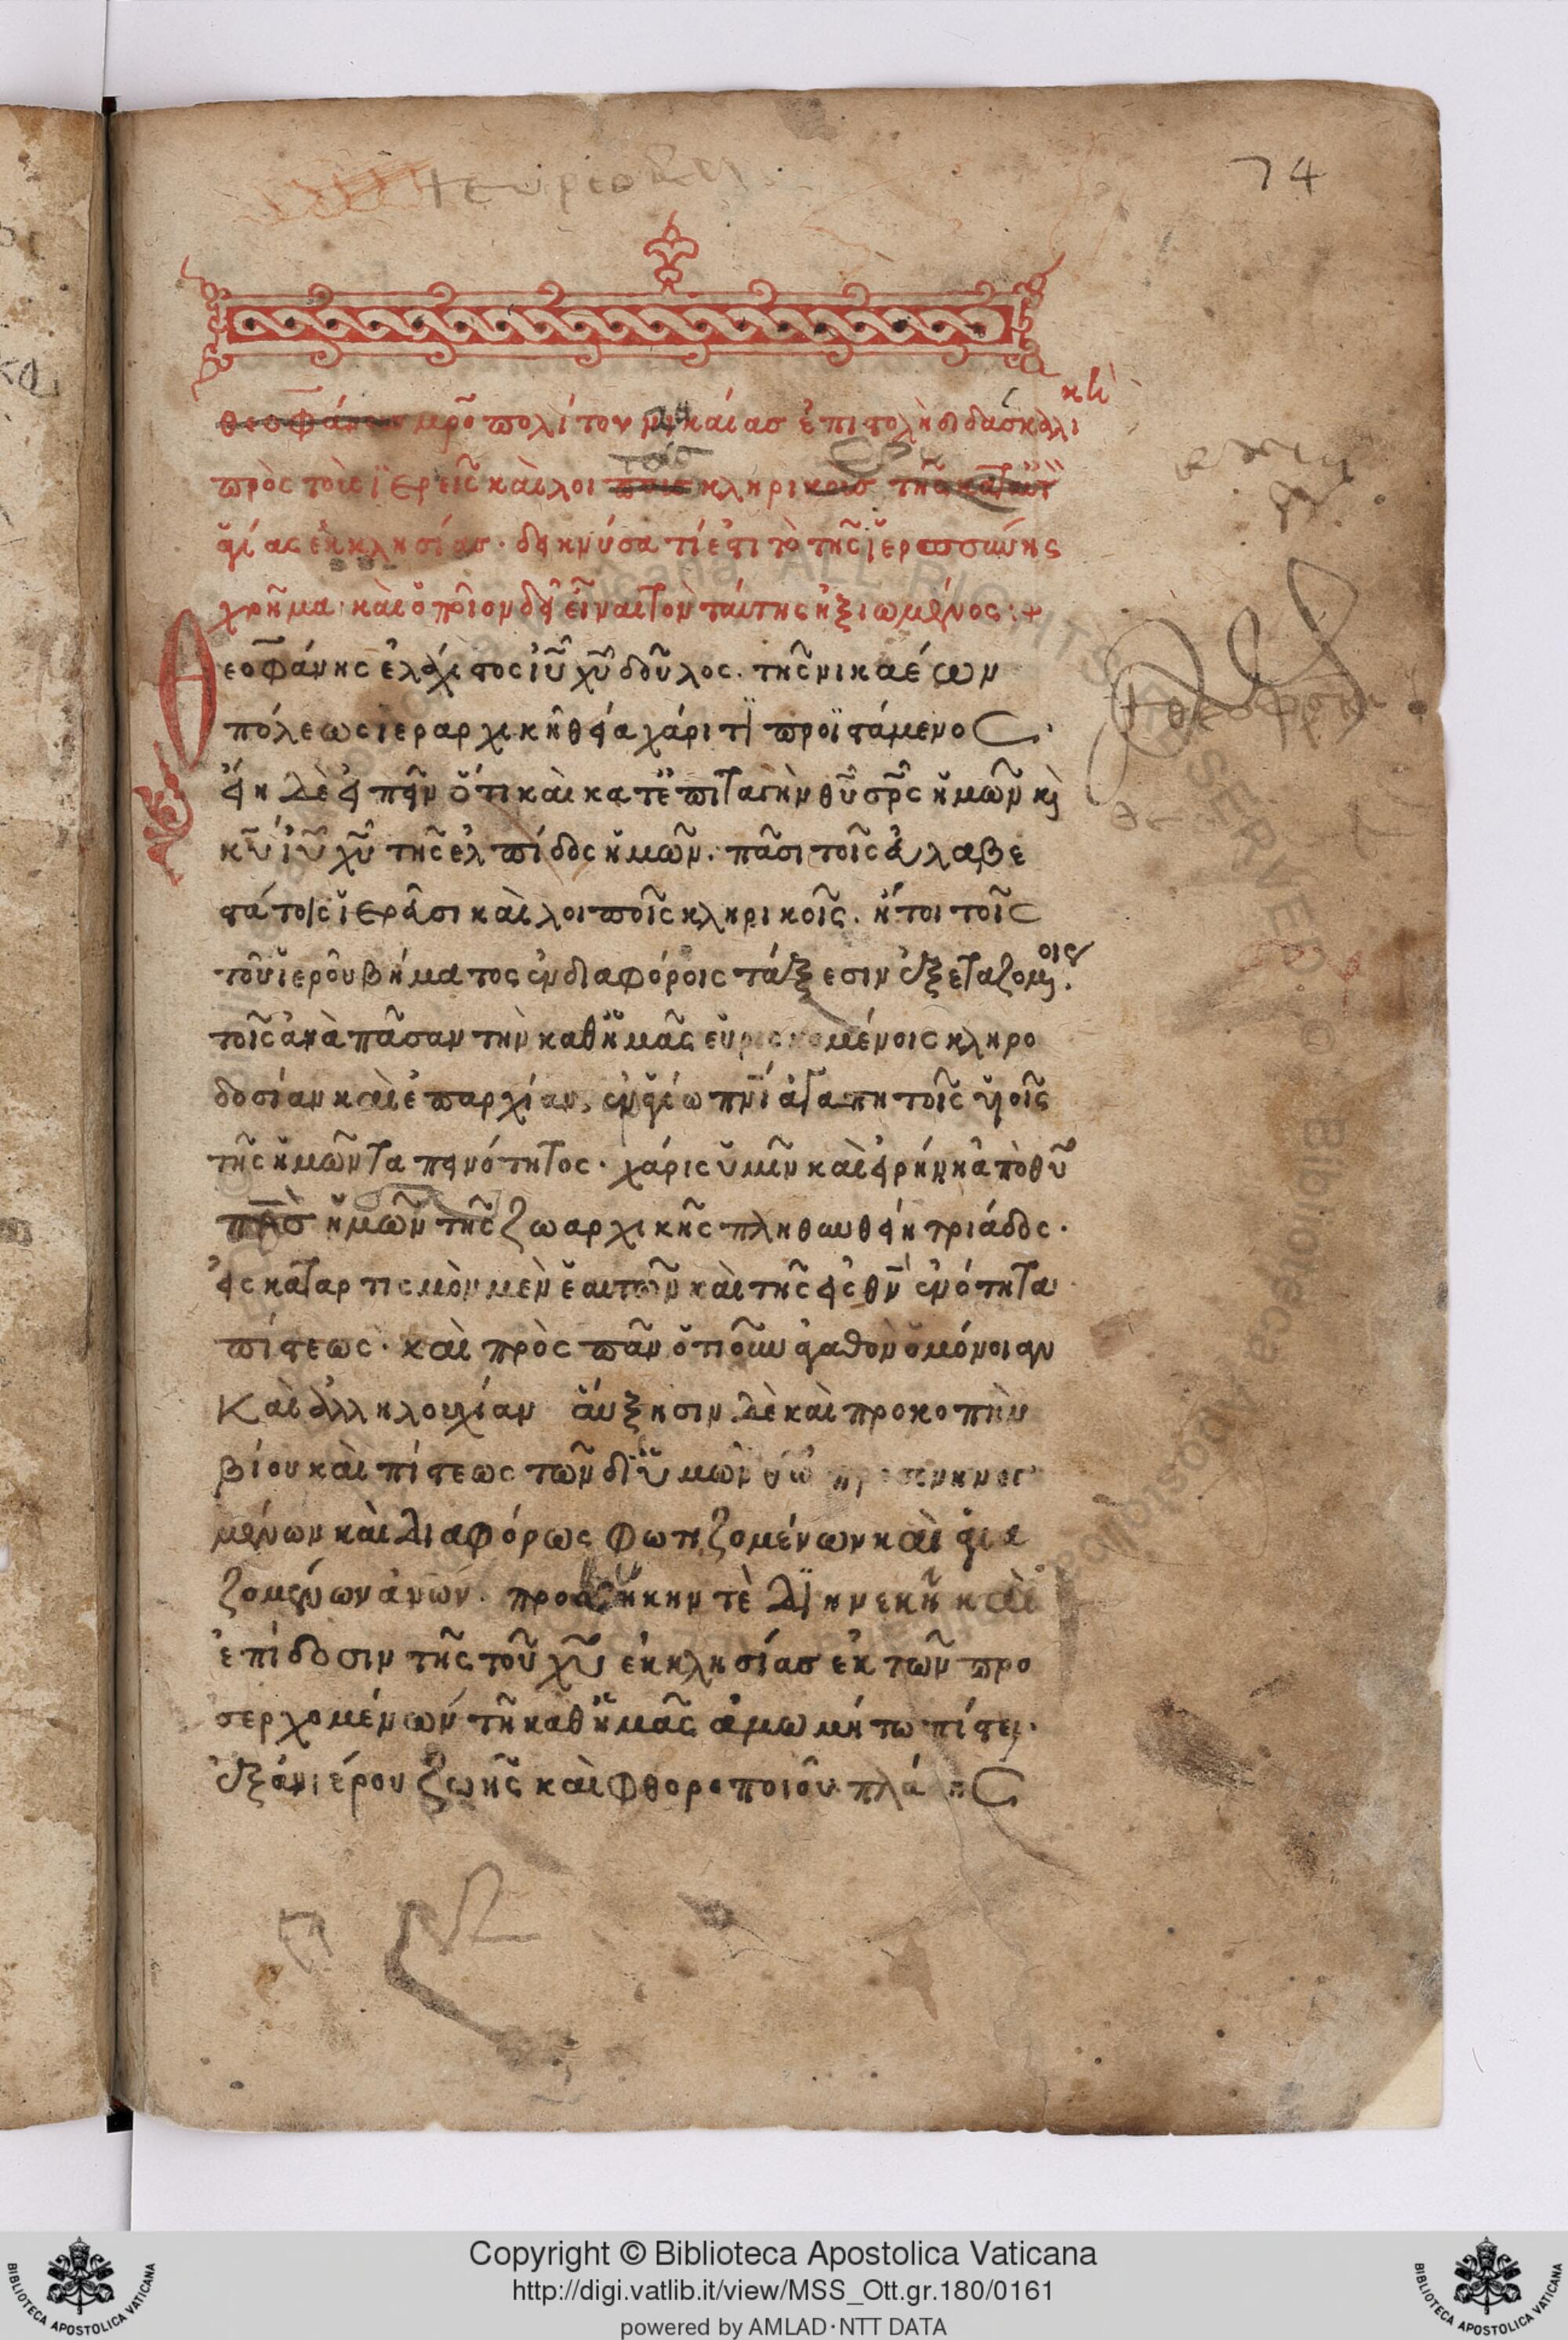 74
κὴ
θεοφάνους μρο πολίτου νικαίας ἐπιστολὴ διδασκαλι
πρὸς τοὺς ἱερεῖς καὶ λοι ποὺς κληρικοὺς τῆς κατ αυτ
ἁγίας ἐκκλησίας· δεικνύσα τί ἐστι τὸ τῆς ἱερωσσύνης
χρῆμα· καὶ ὁποῖον δεῖ εἶναι τὸν ταύτης ἠξιωμένος :+
Θεοφάνης ἐλάχιστος ἰῦ χῦ δοῦλος. τῆς νικαέων
πόλεως ἱεραρχικῆ θεία χάριτι προϊστάμενος·
εἴη δὲ εἰπεῖν ὅτι καὶ κατ ἐπιταγὴν θῦ σρς ἡμῶν κὶ
κῦ ἰῦ χῦ τῆς ἐλπίδος ἡμῶν. πᾶσι τοῖς εὐλαβε
στάτοις ἱερεῦσι καὶ λοιποῖς κληρικοῖς. ἤτοι τοῖς
τοῦ ἱεροῦ βήματος ἐν διαφόροις τάξεσιν ἐξεταζομένοις.
τοῖς ἀνὰ πᾶσαν τὴν καθ ἡμᾶς εὑρισκομένοις κληρο
δοσίαν καὶ ἐπαρχίαν, ἐν ἁγίω πνι ἀγαπητοῖς υἱοῖς
τῆς ἡμῶν ταπεινότητος. χάρις ὑμῖν καὶ εἰρήνη ἀπὸ θῦ
πρς ἡμῶν τῆς ζωαρχικῆς πληθυνθείη τριάδος.
εἰς καταρτισμὸν μὲν ἑαυτῶν καὶ τῆς εἰς θν ἑνότητα
πίστεως. καὶ πρὸς πᾶν ὁτιοῦν ἀγαθὸν ὁμόνοιαν
Καὶ ἀλληλουχίαν αὔξησιν δὲ καὶ προκοπὴν
βίου καὶ πίστεως τῶν δι ὑμῶν θῶ
μένων καὶ διαφόρως φωτιζομένων καὶ ἁγια
ζομένων ἀνων. προσθήκην τὲ διηνεκῆ καὶ
ἐπίδοσιν τῆς τοῦ χῦ ἐκκλησίας ἐκ τῶν προ
σερχομένων τῆ καθ ἡμᾶς ἀμωμήτω πίστει.
ἐξ ἀνιέρου ζωῆς καὶ φθοροποιοῦ πλάνης
Copyright © Biblioteca Apostolica Vaticana
http://digi.vatlib.it/view/MSS_Ott.gr.180/0161
powered by AMLAD·NTT DATA
BIBLIOTECA APOSTOLICA VATICANA
BIBLIOTECA APOSTOLICA VATICANA